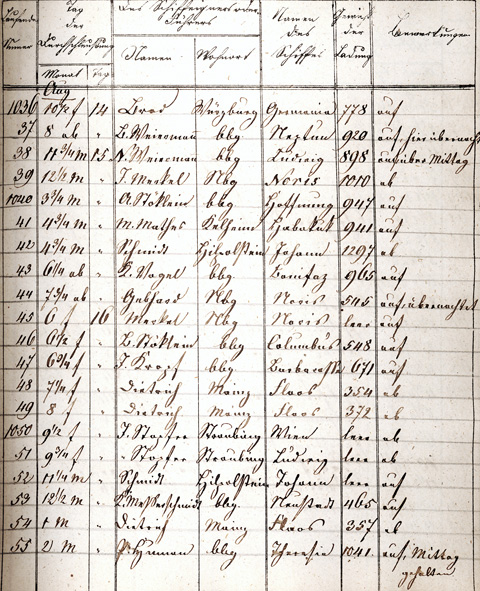 Laufende Nummer | Tag der Durchschleusung | Des Schiffseigners oder Führers | Namen des Schiffes | Gewicht der Ladung | Bemerkungen
Monat | Tag | Namen | Wohnort
Aug
1036 10½ f 14 Brod Würzburg Germania 778 auf
37 8 ab " bbg Neptun 920 auf, hier übernacht
38 11¾ m 15 bbg Ludwig 898 auf über Mittag
39 12½ m " J. Merkel Nbg Noris 1010 ab
1040 3¾ m " A. Stöklein bbg Hoffnung 947 auf
41 4¾ m " M. Mathes Kelheim Habakuk 941 auf
42 4¾ m " Schmidt Hilpolstein Johann 1297 ab
43 6¼ ab " K. Nagel bbg Bonifaz 965 auf
44 7¾ ab " Gebhard Nbg Noris 545 auf, übernachtet
45 6 f 16 Merkel Nbg Noris leer auf
46 6½ f " B. Stöklein bbg Columbus 548 auf
47 6¾ f " J. Kropf bbg Barbarossa 671 auf
48 7¼ f " Dietrich Mainz Floos 354 ab
49 8 f " Dietrich Mainz Floos 372 ab
1050 9½ f " J. Stopfer Straubing Wien leer ab
51 9¾ f " " Stopfer Straubing Ludwig leer ab
52 11¼ m " Schmidt Hilpolstein Johann leer auf
53 12½ m " K. Messerschmidt bbg Neustadt 465 auf
54 1 m " Dietrich Mainz Floos 357 ab
55 2 m " bbg Theresia 1041 auf, Mittag
gehalten